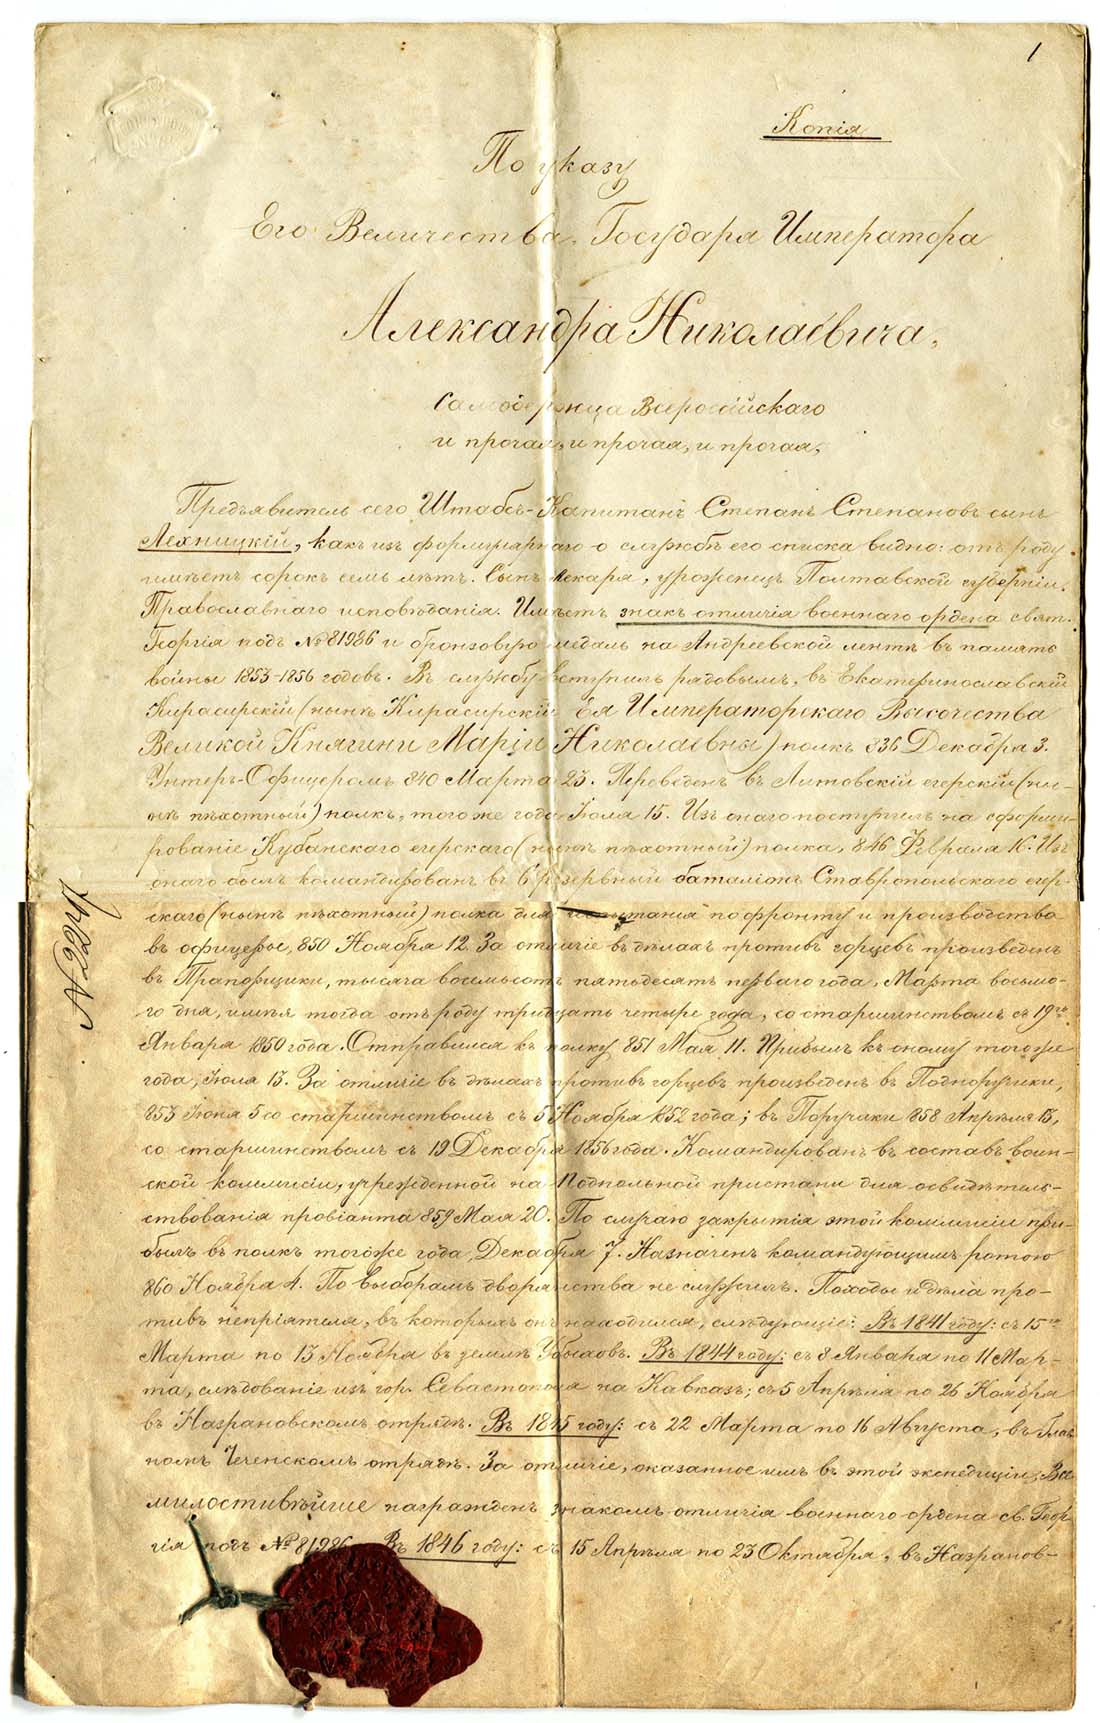 1
Копія
По указу
Его Величества Государя Императора
Александра Николаевича,
Самодержца Всероссійскаго
и прочая, и прочая, и прочая,
Предъявитель сего Штабсъ-Капитанъ Степанъ Степановъ сынъ
Лехницкій, какъ изъ формулярнаго о службѣ его списка видно: отъ роду
имѣетъ сорокъ семь лѣтъ. Сынъ Лекаря, уроженецъ Полтавской губерніи.
Православнаго исповѣданія. Имѣетъ знакъ отличія военнаго ордена свят.
Георгія подъ № 81986 и бронзовую медаль на Андреевской лентѣ въ память
войны 1853-1856 годовъ. Въ службу вступилъ рядовымъ, въ Екатеринославскій
Кирасирскій (нынѣ Кирасирскій Ея Императорскаго Высочества
Великой Княгини Маріи Николаевны) полкъ 836 Декабря 3.
Унтеръ-Офицеромъ 840 Марта 23. Переведенъ въ Литовскій егерскій (ны-
нѣ пѣхотный) полкъ, того же года Іюля 15. Изъ онаго поступилъ на сформи-
рованіе Кубанскаго егерскаго (нынѣ пѣхотный) полка, 846 Февраля 16. Изъ
онаго былъ командированъ въ 6 резервный баталіонъ Ставропольскаго егер-
скаго (нынѣ пѣхотный) полка для испытанія по фронту и производства
въ офицеры, 850 Ноября 12. За отличіе въ дѣлахъ противъ горцевъ произведенъ
въ Прапорщики, тысяча восемьсотъ пятьдесятъ перваго года, Марта восьмо-
го дня, имѣя тогда отъ роду тридцать четыре года, со старшинствомъ съ 19го
Января 1850 года. Отправился къ полку 851 Мая 11. Прибылъ къ оному того же
года, Іюля 13. За отличіе въ дѣлахъ противъ горцевъ произведенъ въ Подпоручики,
853 Іюня 5 со старшинствомъ съ 5 Ноября 1852 года; въ Поручики 858 Апрѣля 13,
со старшинствомъ съ 19 Декабря 1856 года. Командированъ въ составъ воин-
ской коммисіи, учрежденной на Подпольной пристани для освидѣтель-
ствованія провіанта 859 Мая 20. По случаю закрытія этой коммисіи при-
былъ въ полкъ того же года, Декабря 7. Назначенъ командующимъ ротою
860 Ноября 4. По выборамъ дворянства не служилъ. Походы и дѣла про-
тивъ непріятеля, въ которыхъ онъ находился, слѣдующіе: Въ 1841 году: съ 15го
Марта по 13 Ноября въ землѣ Убыховъ. Въ 1844 году: съ 8 Января по 11 Мар-
та, слѣдованіе изъ гор. Севастополя на Кавказъ; съ 5 Апрѣля по 26 Ноября
въ Назрановскомъ отрядѣ. Въ 1845 году: съ 22 Марта по 16 Августа, въ Глав-
номъ Чеченскомъ отрядѣ. За отличіе, оказанное имъ въ этой экспедиціи, Все-
милостивѣйше награжденъ знакомъ отличія военнаго ордена св. Геор-
гія подъ № 81986. Въ 1846 году: съ 15 Апрѣля по 23 Октября, въ Назранов-
№ 2247